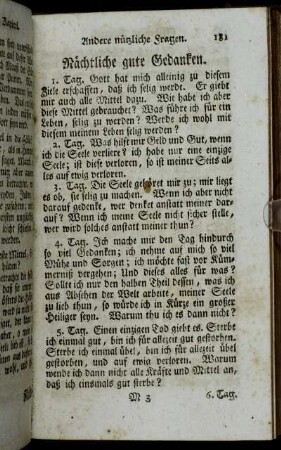 Andere nützliche Fragen. 181
Nächtliche gute Gedanken.
1. Tag. Gott hat mich alleinig zu diesem
Ziele erschaffen, daß ich selig werde. Er giebt
mir auch alle Mittel dazu. Wie habe ich aber
diese Mittel gebrauchet? Was führe ich für ein
Leben, selig zu werden? Werde ich wohl mit
diesem meinem Leben selig werden?
2. Tag. Was hilft mir Geld und Gut, wenn
ich die Seele verliere? ich habe nur eine einzige
Seele; ist diese verloren, so ist meiner Seits alles
auf ewig verloren.
3. Tag. Die Seele gehöret mir zu; mir liegt
es ob, sie selig zu machen. Wenn ich aber nicht
darauf gedenke, wer denket anstatt meiner dar-
auf? Wenn ich meine Seele nicht sicher stelle,
wer wird solches anstatt meiner thun?
4. Tag. Ich mache mir den Tag hindurch
so viel Gedanken; ich nehme auf mich so viel
Mühe und Sorgen; ich möchte fast vor Küm-
merniß vergehen; Und dieses alles für was?
Sollte ich nur den halben Theil dessen, was ich
aus Absehen der Welt arbeite, meiner Seele
zu lieb thun, so würde ich in Kürze ein großer
Heiliger seyn. Warum thu ich es dann nicht?
5. Tag. Einen einzigen Tod giebt es. Sterbe
ich einmal gut, bin ich für allezeit gut gestorben.
Sterbe ich einmal übel, bin ich für allezeit übel
gestorben, und auf ewig verloren. Warum
wende ich dann nicht alle Kräfte und Mittel an,
daß ich einsmals gut sterbe?
M 3 6. Tag.